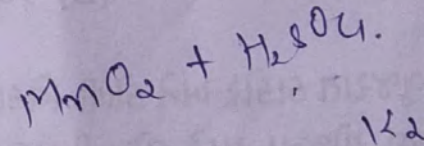 MnO2 + H2SO4.
K2